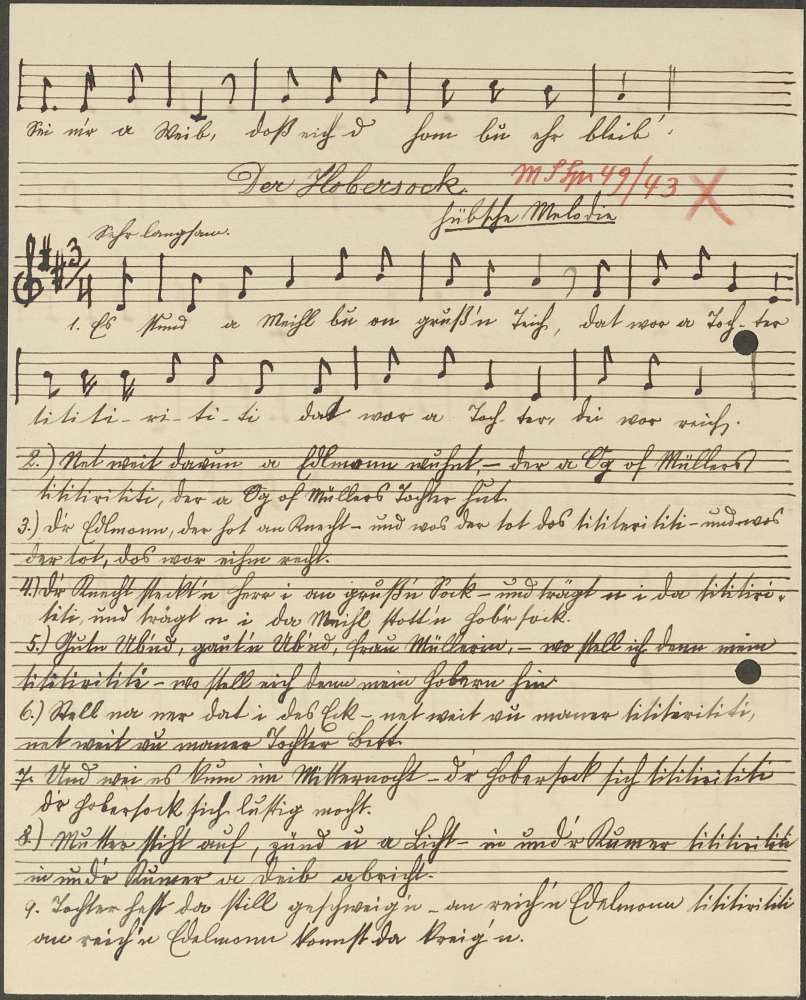 Sei nir a Weib, doß eich d hom bu ehr bleib'.
Der Hobersock.
hübsche Melodie
Sehr langsam.
3/4
1. Es stund a Meihl bu on gruß'n Teich, dat wor a Toch-ter
tititi-ri-ti-ti dat wor a Toch ter, dii wor reich.
2.) Net weit davun a Edlmonn wuhnt, - der a Og of Müllers
tititirititi, der a Og of Müllers Tochter hut.
3.) Dr Edlmonn, der hot an Knecht - und wos der tot dos tititerititi - und wos
der tot, dos wor eihm recht.
4.) Dr Knecht steckt'n Herr i an gruß'n Sock - und trägt n i da tititiri-
titi, und trägt n i da Meihl stott'n Hobr sock.
5.) Gutn Ub'nd, gaut'n Ub'nd, Frau Müllerin, - wo stell ich denn mein
tititirititi - wo stell eich denn mein Hobern hin
6.) Stell na ner dat i des Eck - net weit vu maner titiierititi,
net weit vu maner Tochter Bett.
7. Und wei es kum im Mitternocht - dr Hobersock sich tititirititi
dr Hobersock sich lustig mocht.
8.) Mutter stiht auf, zünd u a Licht - in undr Kumer tititirititi
in undr Kumer a Deib abricht.
9. Tochter hest da still geschweig'n - an reich'n Edelmonn tititirititi
an reich'n Edelmonn konnst da kreig'n.